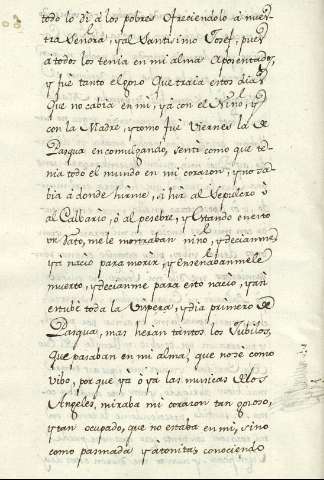 todo lo di à los pobres ofreciendolo à nues
tra Señora, y al Santissimo Josef, pues
à todos los tenia en mi alma aposentados,
y fuè tanto el goso que traia estos dias
que no cabia en mi, yà con el Niño, y
con la Madre, y como fuè Viernes la de
Pasqua en comulgando, sentì como que te-
nia todo el mundo en mi corazon, y no sa-
bia à donde hirme, si hir al Sepulcro ò
al Calbario, ò al pesebre, y estando en esto
un rato, me le mostraban niño, y decianme
yà naciò para morir, y enseñabanmele
muerto, y decianme para esto naciò, y asi
estube toda la Vispera, y dia primero de
Pasqua, mas heran tantos los Jubilos,
que pasaban en mi alma, que nosè como
vibo, por que yà oyà las musicas de los
Angeles, miraba mi corazon tan gososo,
y tan ocupado, que no estaba en mi, sino
como pasmada y atonita, conociendo